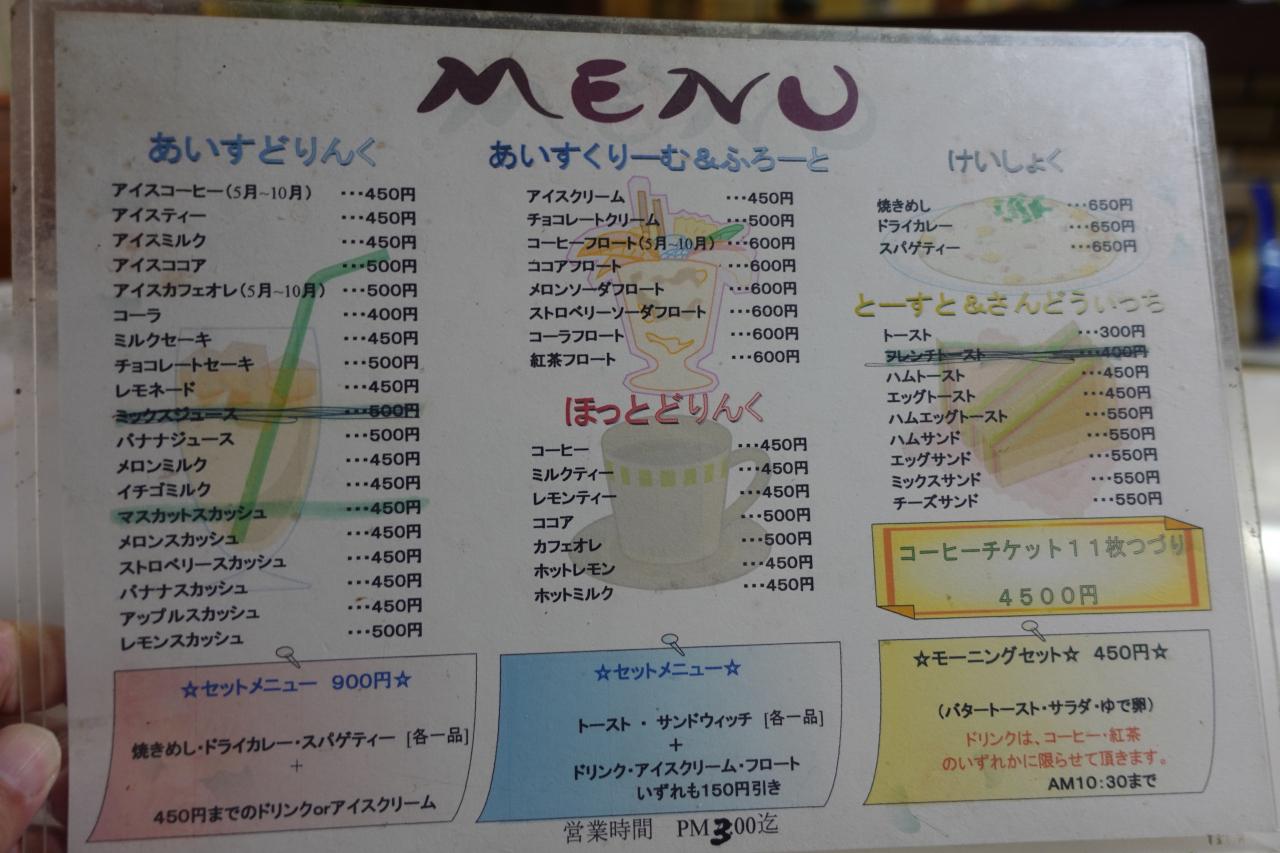 MENU
あいすどりんく
アイスコーヒー(5月~10月) ･･･450円
アイスティー ･･･450円
アイスミルク ･･･450円
アイスココア ･･･500円
アイスカフェオレ(5月~10月) ･･･500円
コーラ ･･･400円
ミルクセーキ ･･･450円
チョコレートセーキ ･･･500円
レモネード ･･･450円
ミックスジュース ･･･500円
バナナジュース ･･･500円
メロンミルク ･･･450円
イチゴミルク ･･･450円
マスカットスカッシュ ･･･450円
メロンスカッシュ ･･･450円
ストロベリースカッシュ ･･･450円
バナナスカッシュ ･･･450円
アップルスカッシュ ･･･450円
レモンスカッシュ ･･･500円
あいすくりーむ&ふろーと
アイスクリーム ･･･450円
チョコレートクリーム ･･･500円
コーヒーフロート(5月~10月) ･･･600円
ココアフロート ･･･600円
メロンソーダフロート ･･･600円
ストロベリーソーダフロート ･･･600円
コーラフロート ･･･600円
紅茶フロート ･･･600円
ほっとどりんく
コーヒー ･･･450円
ミルクティー ･･･450円
レモンティー ･･･450円
ココア ･･･500円
カフェオレ ･･･500円
ホットレモン ･･･450円
ホットミルク ･･･450円
けいしょく
焼きめし ･･･650円
ドライカレー ･･･650円
スパゲティー ･･･650円
とーすと&さんどういっち
トースト ･･･300円
フレンチトースト ･･･400円
ハムトースト ･･･450円
エッグトースト ･･･450円
ハムエッグトースト ･･･550円
ハムサンド ･･･550円
エッグサンド ･･･550円
ミックスサンド ･･･550円
チーズサンド ･･･550円
コーヒーチケット11枚つづり
4500円
☆セットメニュー 900円☆
焼きめし･ドライカレー･スパゲティー [各一品]
+
450円までのドリンクorアイスクリーム
☆セットメニュー☆
トースト ･ サンドウィッチ [各一品]
+
ドリンク･アイスクリーム･フロート
いずれも150円引き
☆モーニングセット☆ 450円☆
(バタートースト･サラダ･ゆで卵)
ドリンクは、コーヒー･紅茶
のいずれかに限らせて頂きます。
AM10:30まで
営業時間 PM3:00迄